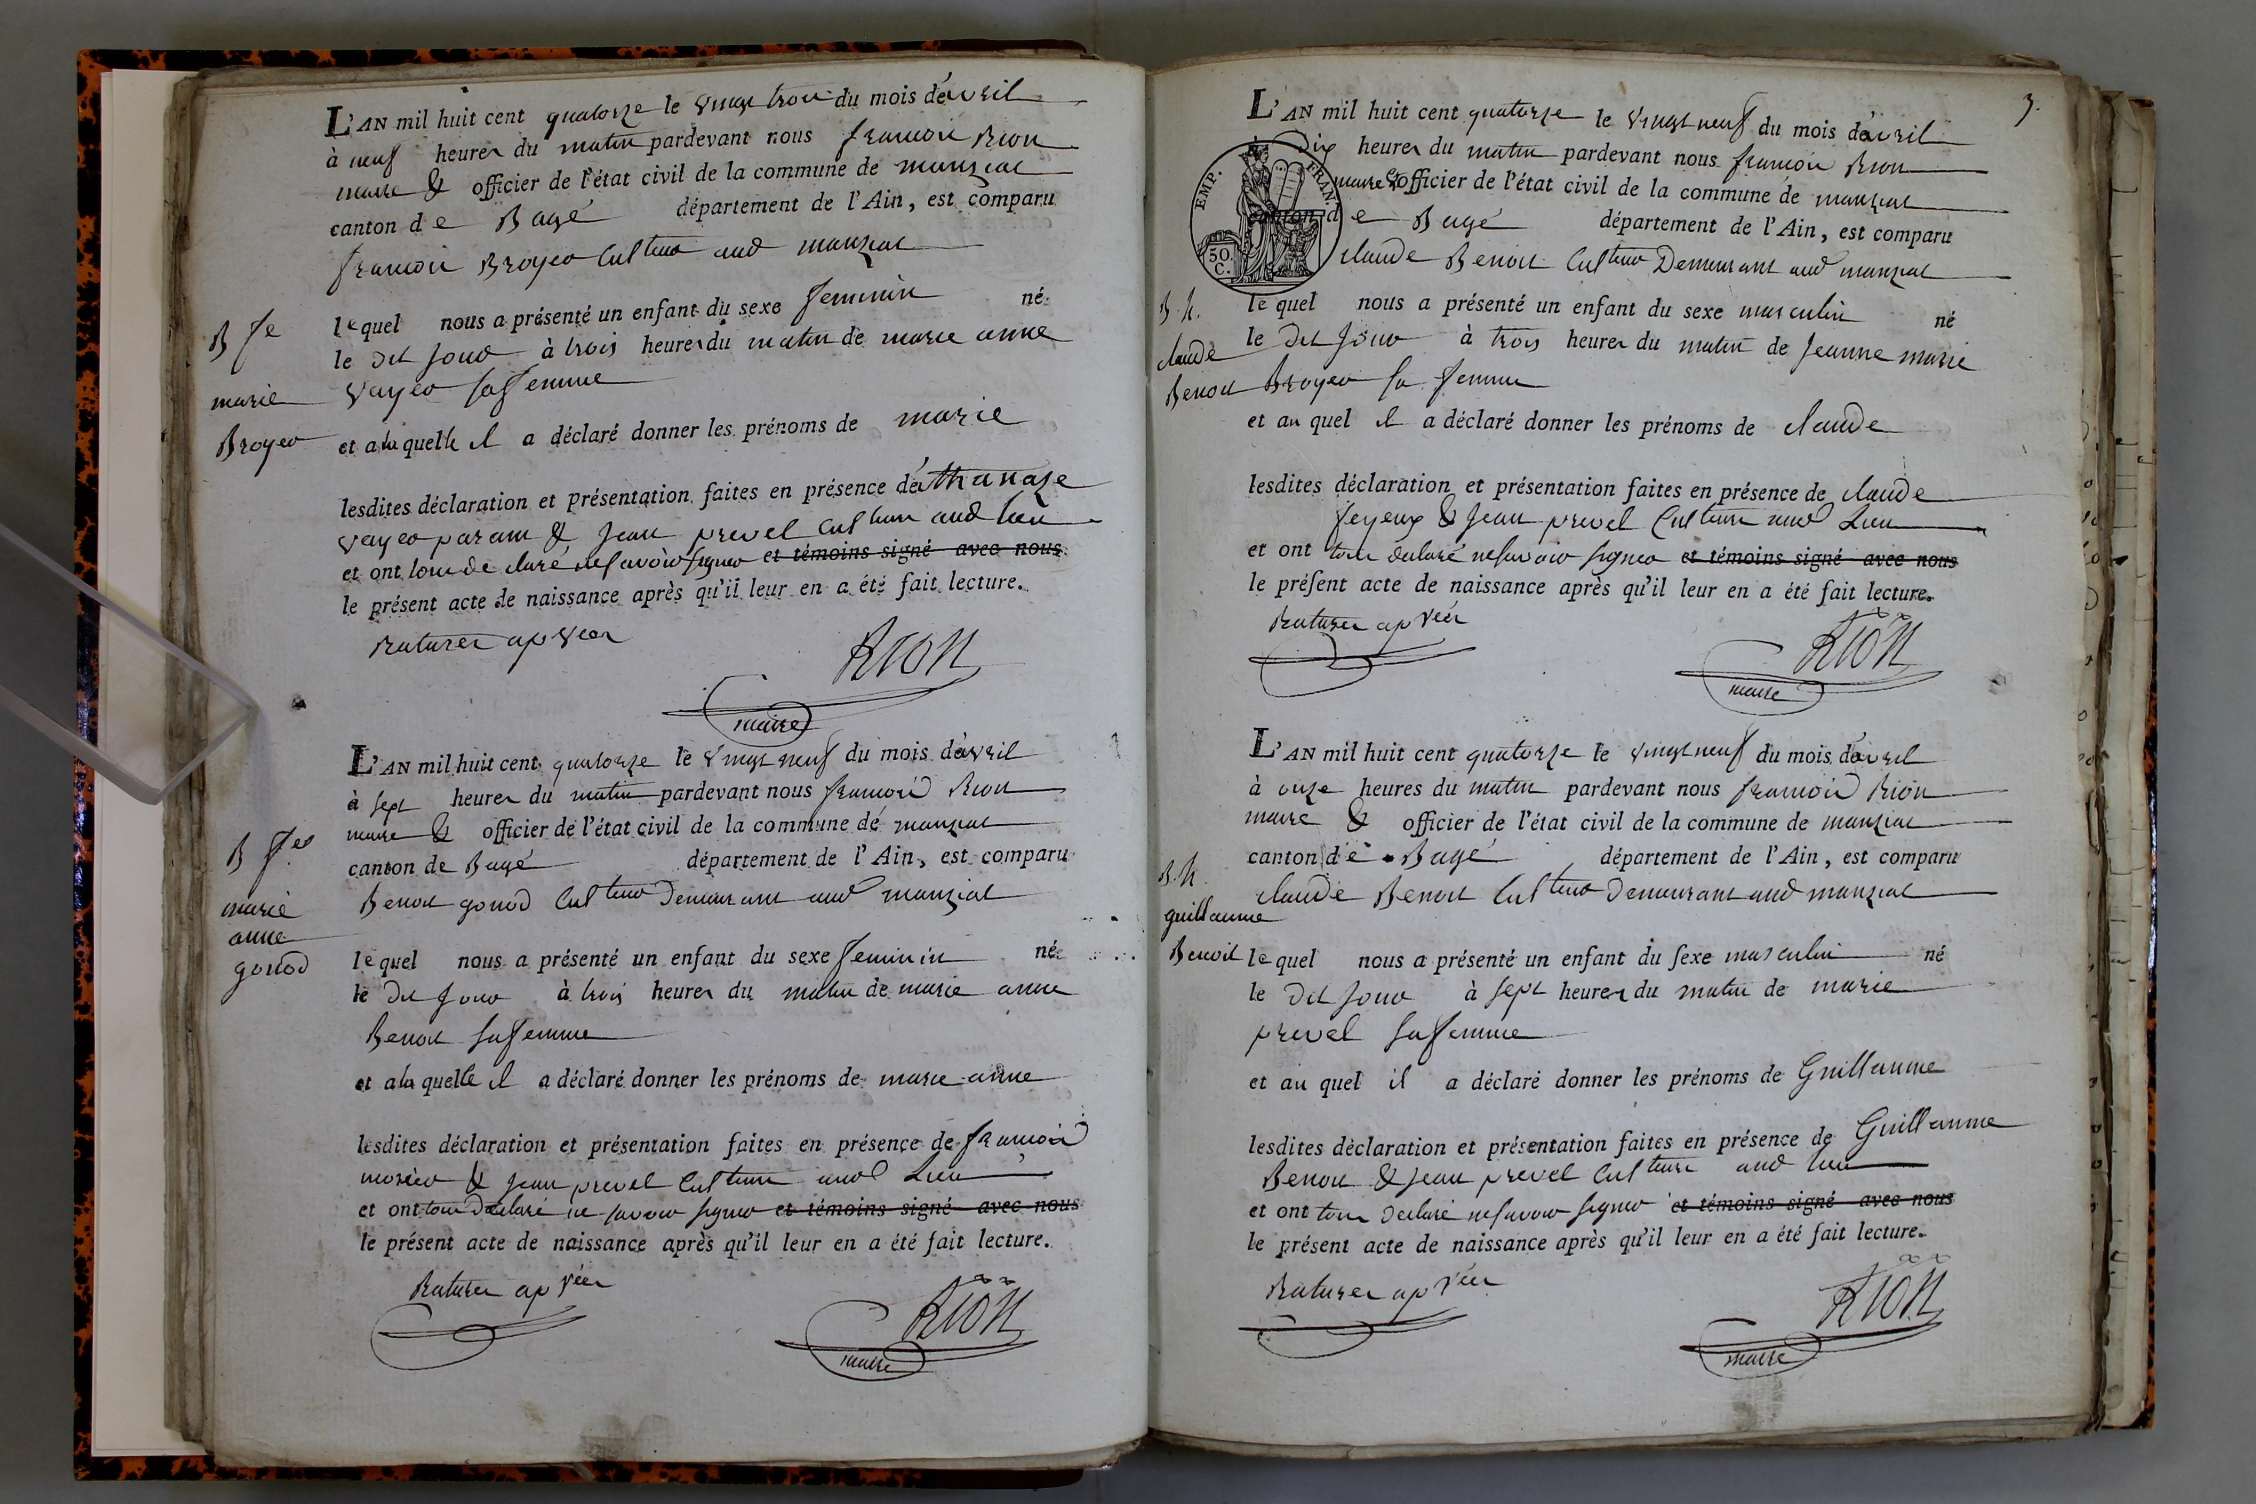 L'AN mil huit cent quatorze le vingt trois du mois d'avril
à neuf heures du matin pardevant nous françois Rion
maire & officier de l'état civil de la commune de manziat
canton de Bagé département de l'Ain, est comparu
françois Broyer Cultteur aud manziat
lequel nous a présenté un enfant du sexe feminin né
le dit jour à trois heures du matin de marie anne
Vayer sa femme
et a la quelle il a déclaré donner les prénoms de marie
lesdites déclaration et présentation faites en présence d'athanaze
vayer parain & jean prevel Cultteurs aud lieu
et ont tous declaré ne savoir signer et témoins signé avec nous
le présent acte de naissance après qu'il leur en a été fait lecture.
Ratures apvées
RION
maire
B fe
marie
Broyer
L'AN mil huit cent quatorze le vingt neuf du mois d'avril
à sept heures du matin pardevant nous françois Rion
maire & officier de l'état civil de la commune de manziat
canton de Bagé département de l'Ain, est comparu
Benoit gonod Cultteur demeurant aud manziat
lequel nous a présenté un enfant du sexe feminin né
le dit jour à trois heures du matin de marie anne
Benoit sa femme
et a la quelle il a déclaré donner les prénoms de marie anne
lesdites déclaration et présentation faites en présence de françois
& jean prevel Cultteurs aud Lieu
et ont tous declaré ne savoir signer et témoins signé avec nous
le présent acte de naissance après qu'il leur en a été fait lecture.
Ratures apvées
RION
maire
B fe
marie
anne
gonod
3.
L'AN mil huit cent quatorze le vingt neuf du mois d'avril
à Dix heures du matin pardevant nous françois Rion
maire & officier de l'état civil de la commune de manziat
canton de Bagé département de l'Ain, est comparu
claude Benoit Cultteur Demeurant aud manziat
EMP. FRAN.
50. C.
lequel nous a présenté un enfant du sexe masculin né
le dit jour à trois heures du matin de Jeanne marie
Broyer sa femme
et au quel il a déclaré donner les prénoms de claude
lesdites déclaration et présentation faites en présence de claude
feyeux & jean prevel Cultteurs aud Lieu
et ont tous declaré ne savoir signer et témoins signé avec nous
le présent acte de naissance après qu'il leur en a été fait lecture.
Ratures apvées
RION
maire
B. h.
claude
Benoit
L'AN mil huit cent quatorze le vingt neuf du mois d'avril
à onze heures du matin pardevant nous françois Rion
maire & officier de l'état civil de la commune de manziat
canton de Bagé département de l'Ain, est comparu
claude Benoit Cultteur demeurant aud manziat
lequel nous a présenté un enfant du sexe masculin né
le dit jour à sept heures du matin de marie
prevel sa femme
et au quel il a déclaré donner les prénoms de Guillaume
lesdites déclaration et présentation faites en présence de Guillaume
Benoit & jean prevel Cultteurs aud lieu
et ont tous declaré ne savoir signer et témoins signé avec nous
le présent acte de naissance après qu'il leur en a été fait lecture.
Ratures apvées
RION
maire
B. h.
guillaume
Benoit